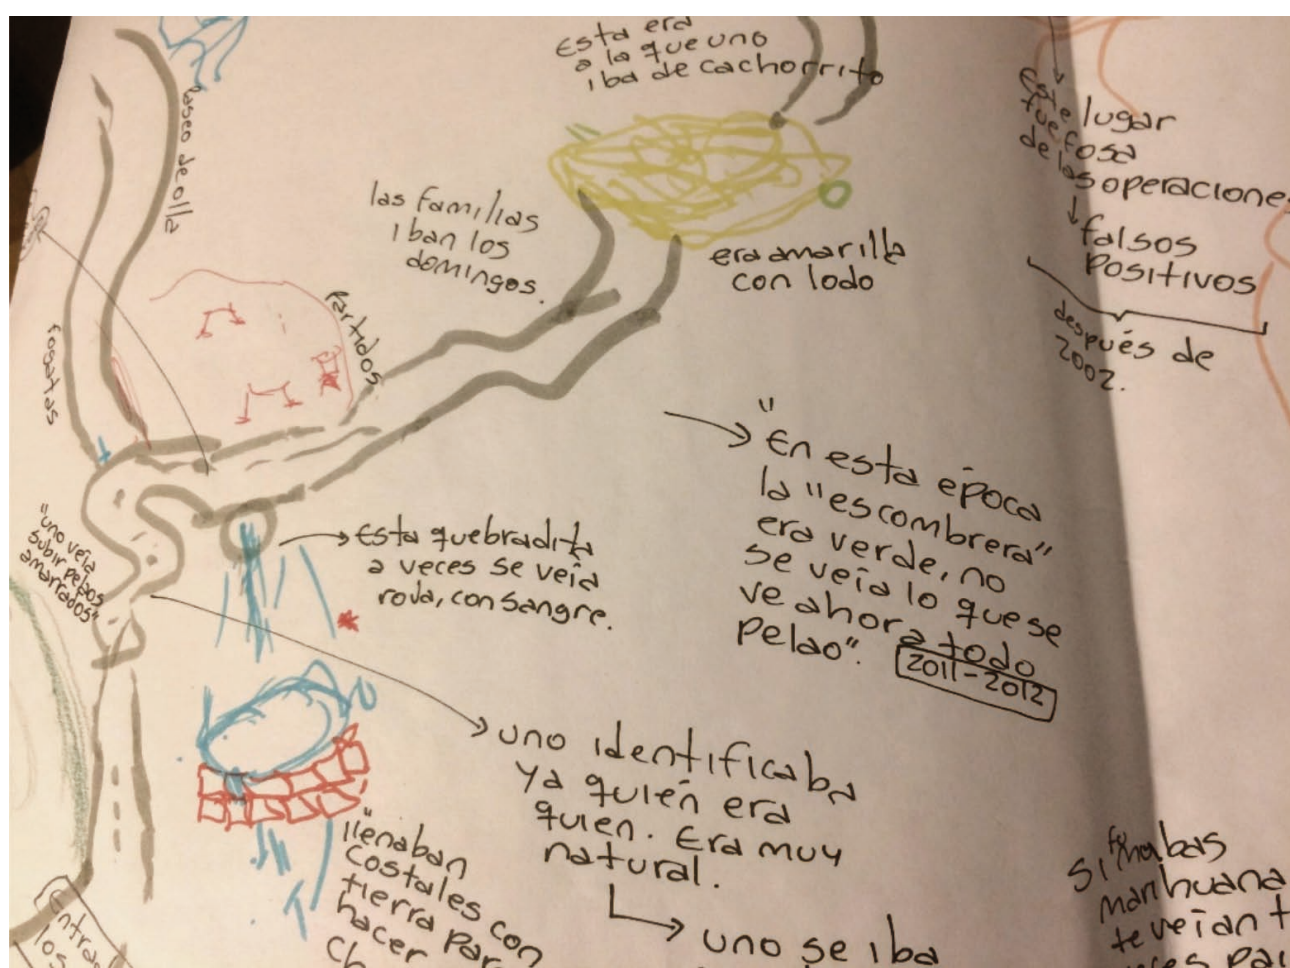 Esta era
a la que uno
iba de cachorrito
paseo de olla
las familias
iban los
domingos.
era amarilla
con lodo
Este lugar
fue fosa
de las operaciones
↓ falsos
positivos
después de
2002.
Partidos
fogatas
"uno veía
subir pelaos
amarrados"
→ Esta quebradita
a veces se veía
roja, con sangre.
→ "En esta época
la "escombrera"
era verde, no
se veía lo que se
ve ahora todo
pelao".
2011-2012
→ uno identificaba
ya quién era
quien. Era muy
natural.
→ uno se iba
"llenaban
costales con
tierra para
hacer
Entra
los
Si fumabas
marihuana
te veían